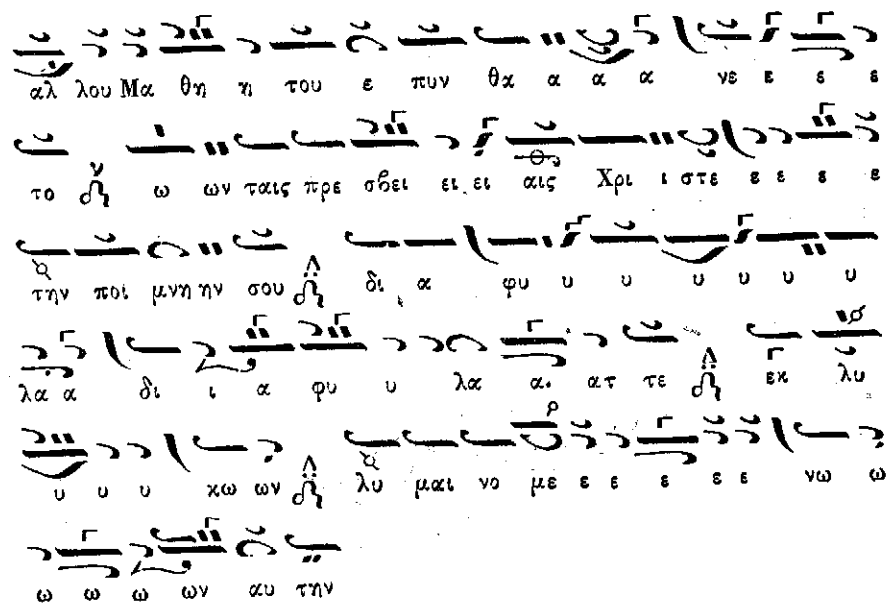 αλ λου Μα θη η του ε πυν θα α α α νε ε ε ε
το ν ω ων ταις πρε σβει ει ει αις Χρι ι στε ε ε ε ε
την ποι μνη ην σου Δ δι α φυ υ υ υ υ υ υ
λα α δι ι α φυ υ λα α. ατ τε Δ εκ λυ
υ υ υ κω ων Δ λυ μαι νο με ε ε ε ε ε νω ω
ω ω ω ων αυ την